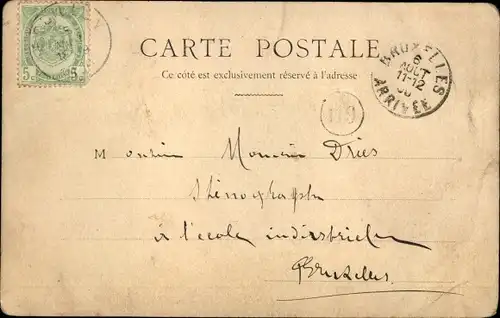 CARTE POSTALE
Ce côté est exclusivement réservé à l'adresse
BRUXELLES
6
AOUT
11-12
ARRIVÉE
5c 5c
Monsieur Monsieur Driès
Sténographe
à l'école industrielle
Bruxelles